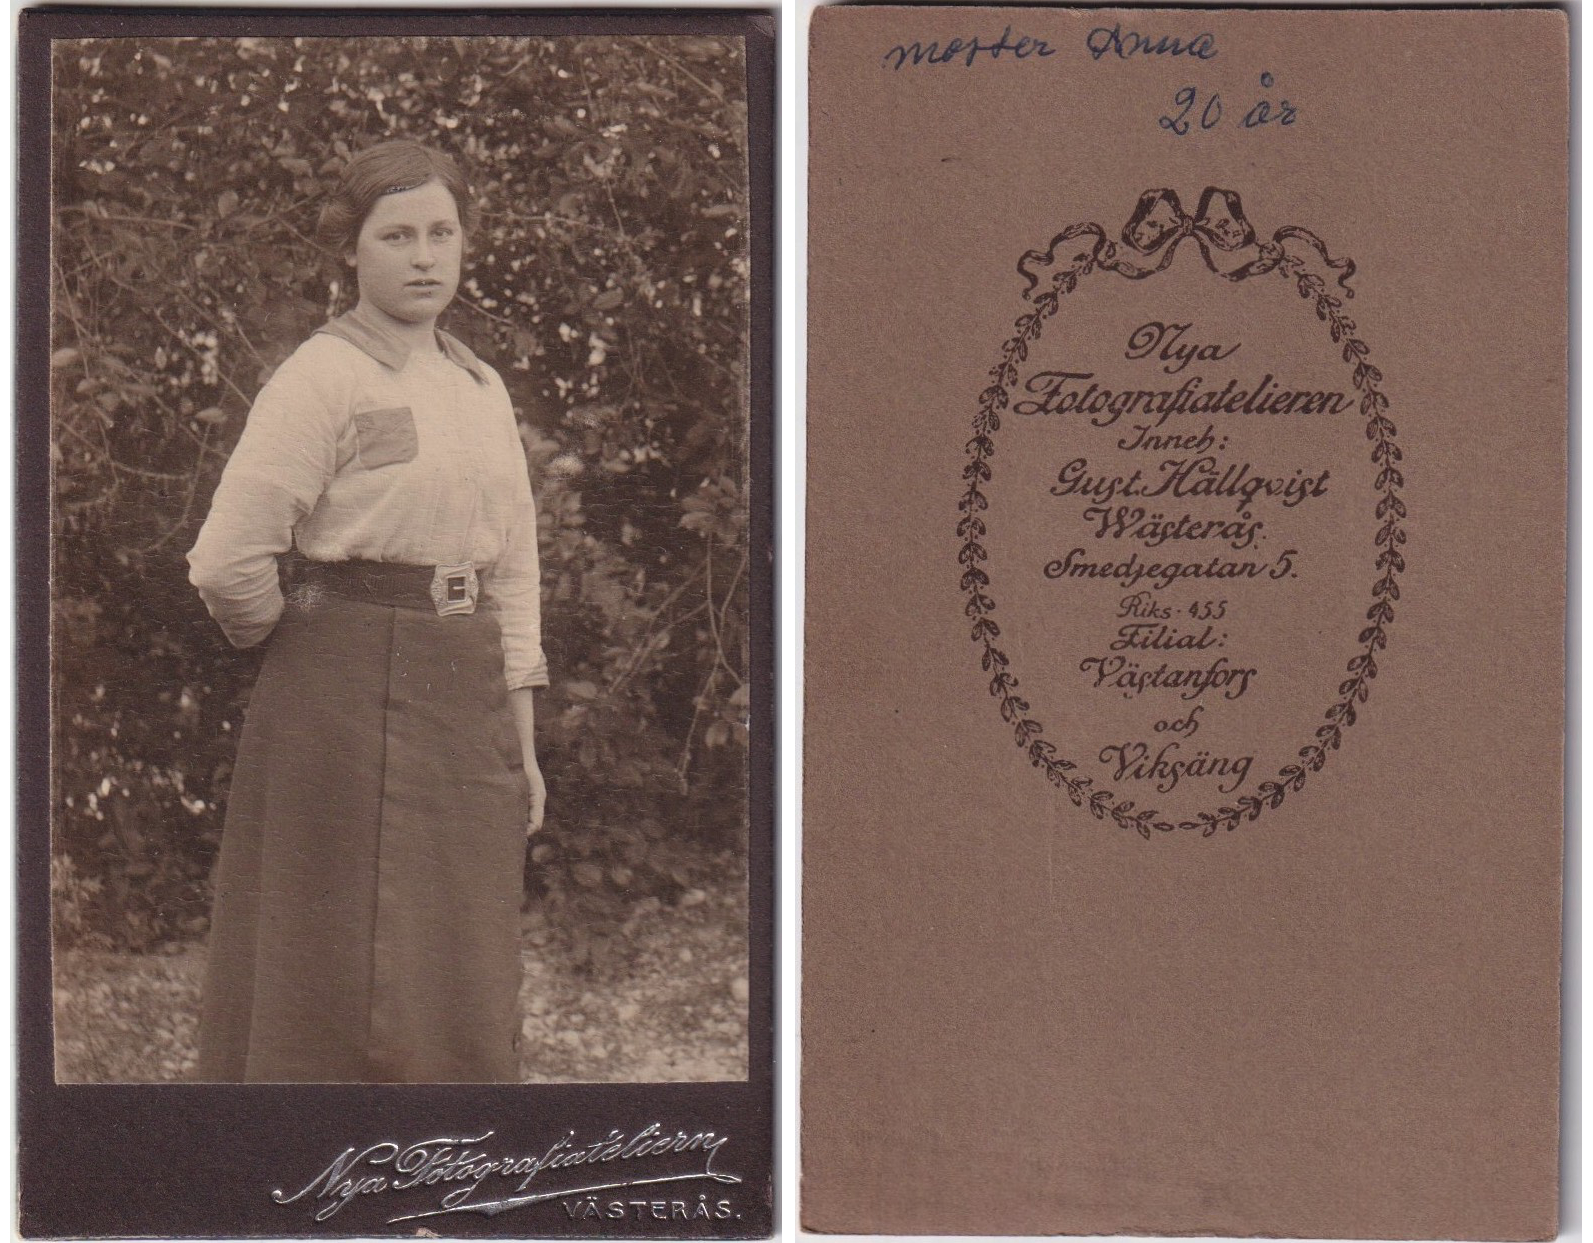 Nya Fotografiateliern
VÄSTERÅS.
moster Anna
20 år
Nya
Fotografiatelieren
Inneh:
Gust. Hällqvist
Wästerås.
Smedjegatan 5.
Riks. 455
Filial:
Västanfors
och
Viksäng